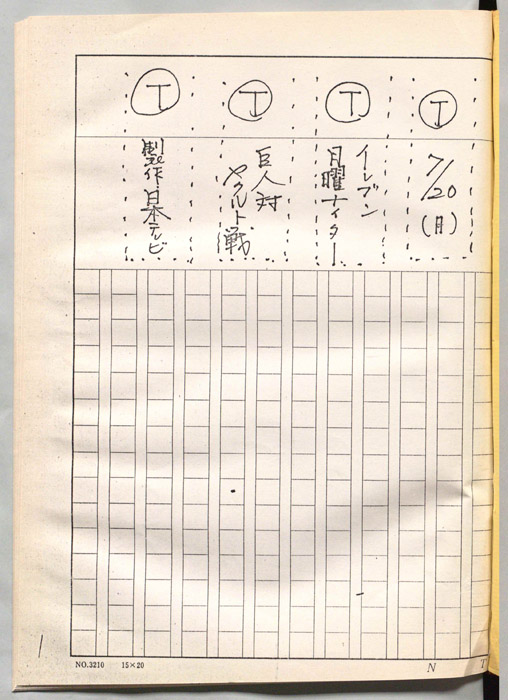 T
7/20
(月)
T
イレブン
月曜ナイター
T
巨人対
ヤクルト戦
T
製作・日本テレビ
1
NO.3210 15×20
N T